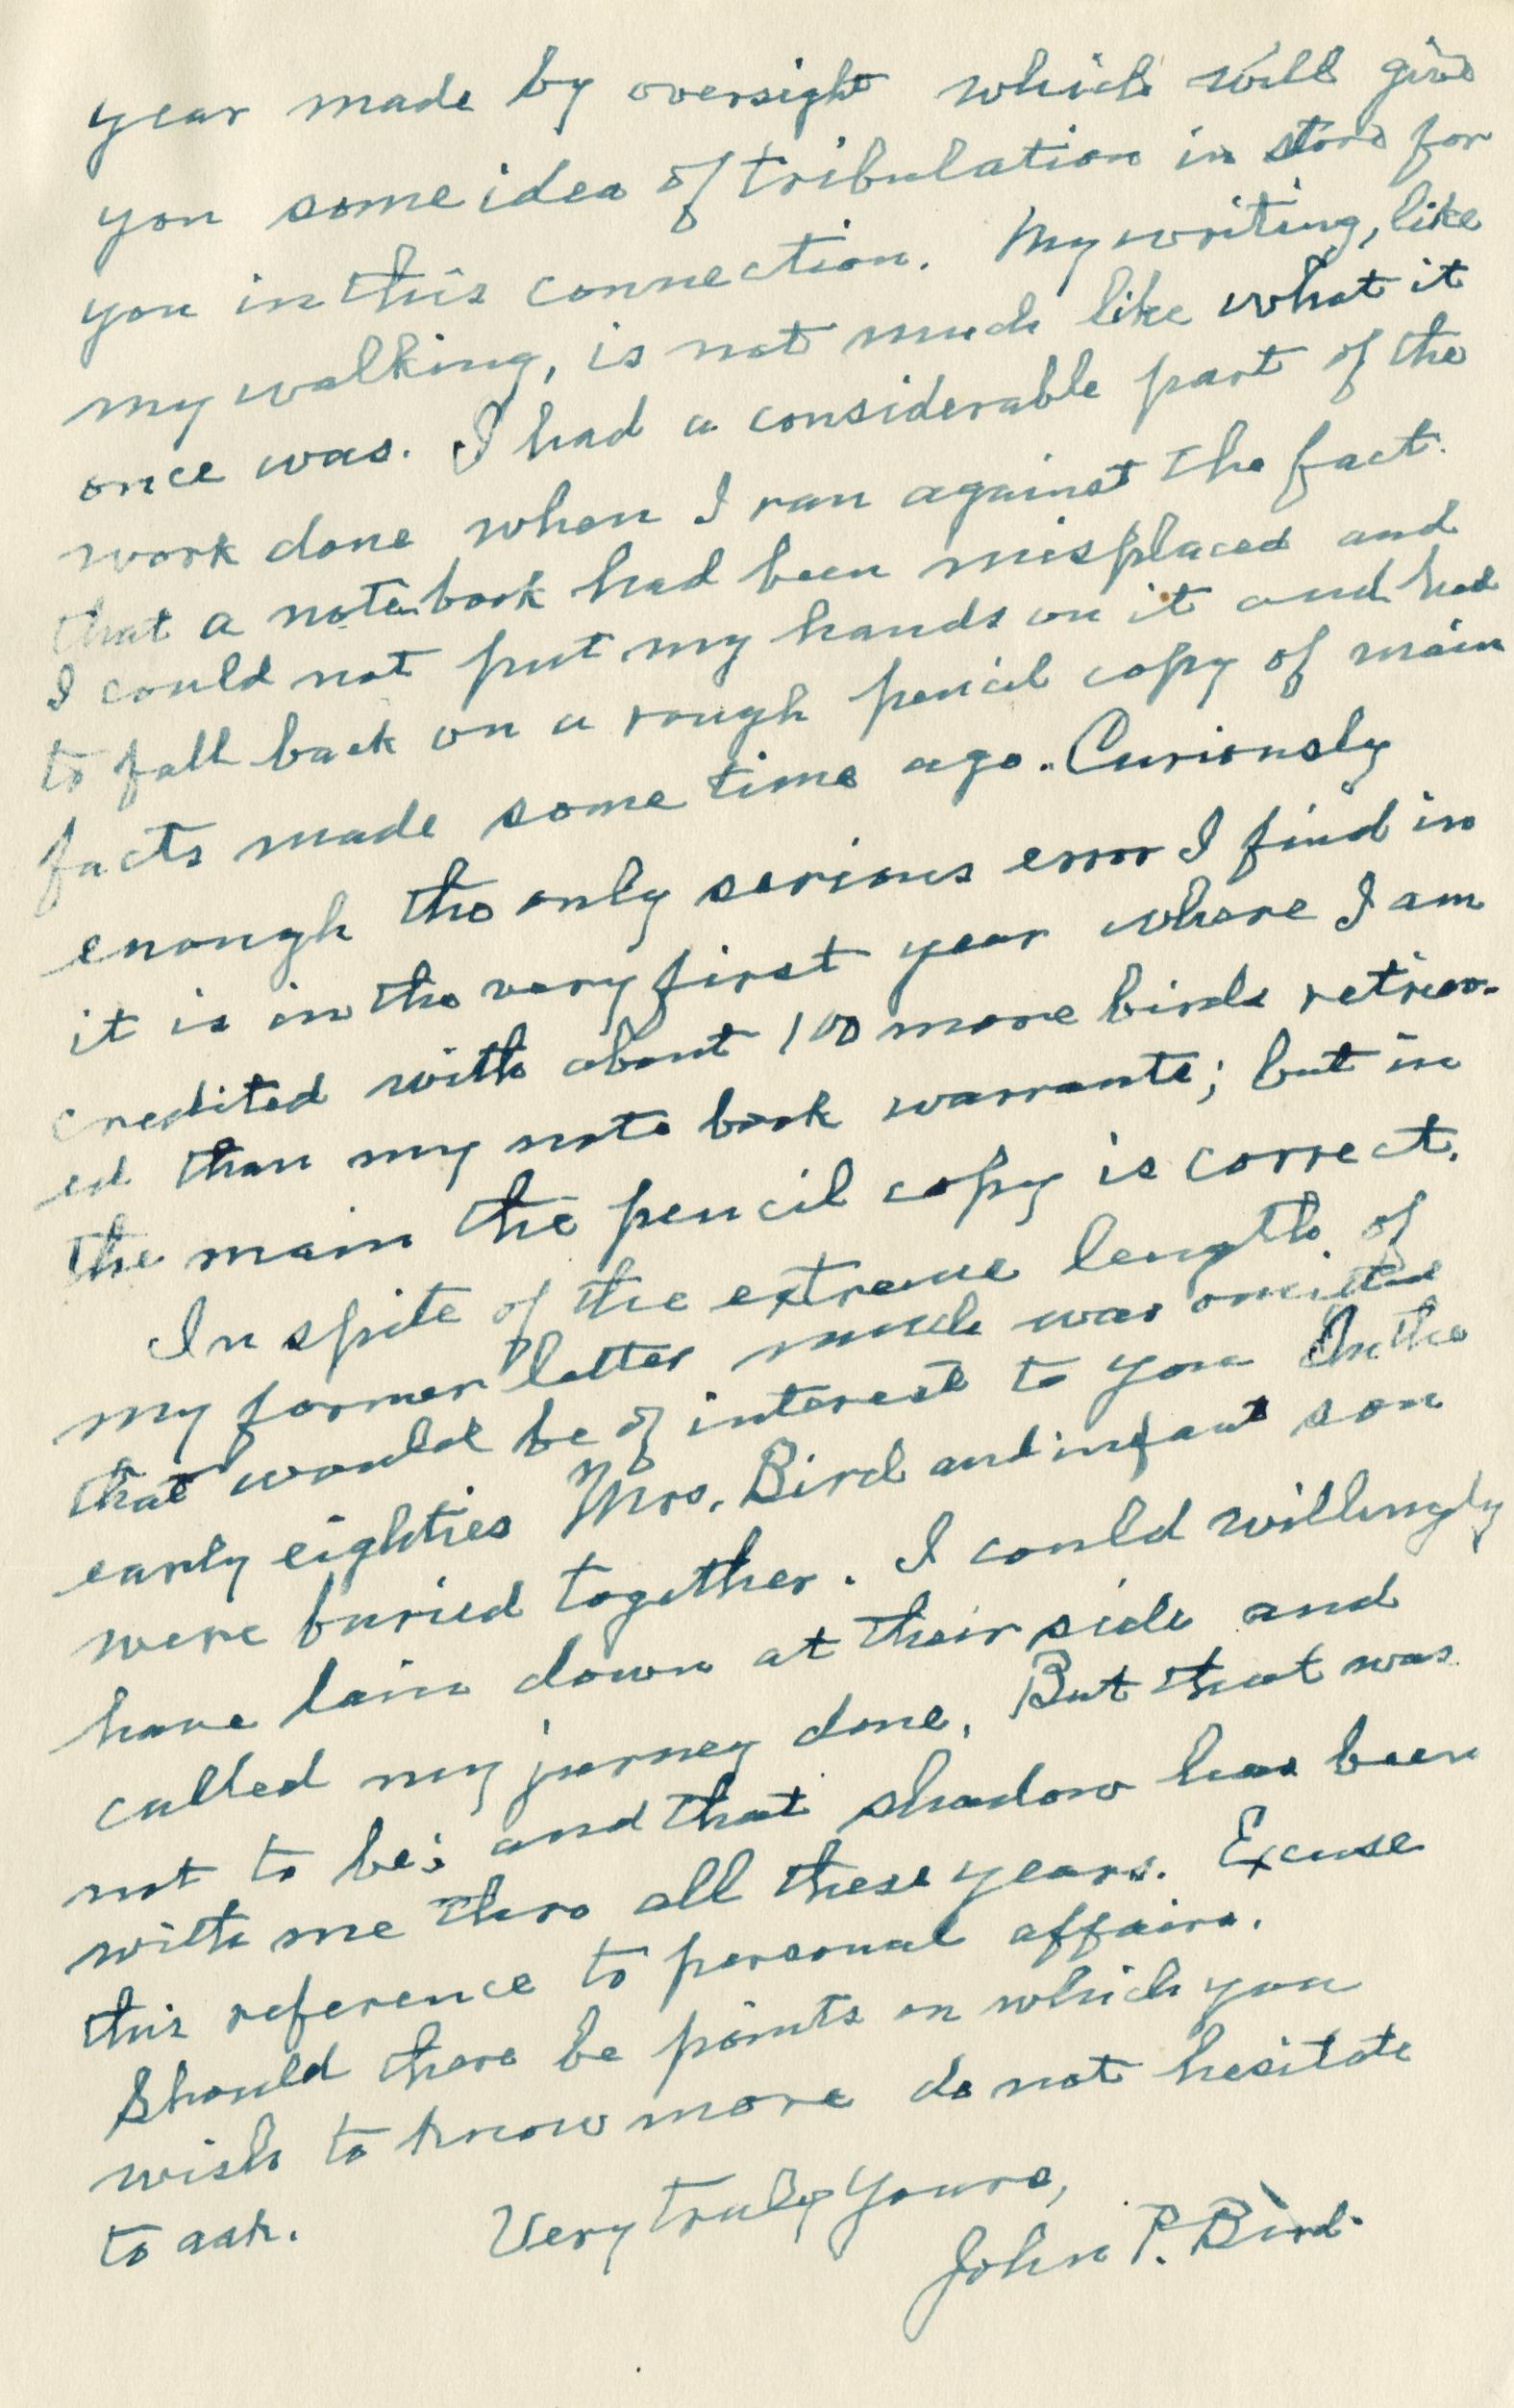 year made by oversight which will give
you some idea of tribulation in store for
you in this connection. My writing, like
my walking, is not much like what it
once was. I had a considerable part of the
work done when I ran against the fact
that a note book had been misplaced and
I could not put my hands on it and had
to fall back on a rough pencil copy of main
facts made some time ago. Curiously
enough the only serious error I find in
it is in the very first year where I am
credited with about 100 more birds retriev-
ed than my note book warrants; but in
the main the pencil copy is correct.
In spite of the extreme length of
my former letter much was omitted
that would be of interest to you In the
early eighties Mrs. Bird and infant son
were buried together. I could willingly
have lain down at their side and
called my jurney done. But that was
not to be; and that shadow has been
with me thro all these years. Excuse
this reference to personal affairs.
Should there be points on which you
wish to know more do not hesitate
to ask. Very truly yours,
John P. Bird.